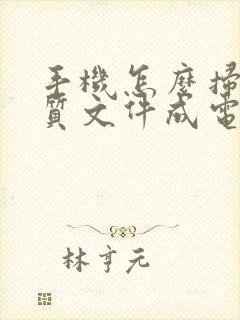 手機怎麼掃
質文件成電
林亨元